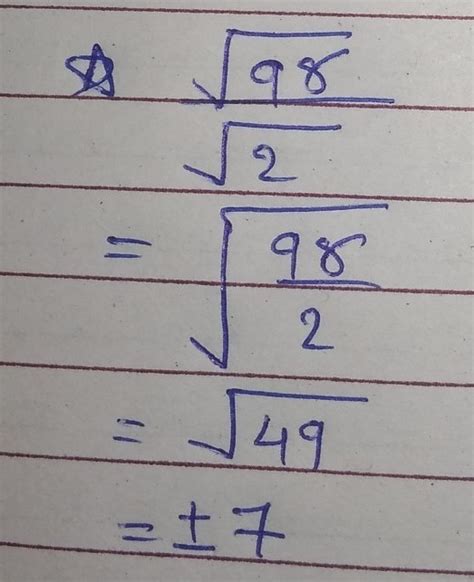 ☆ √98 / √2
= √(98/2)
= √49
= ± 7